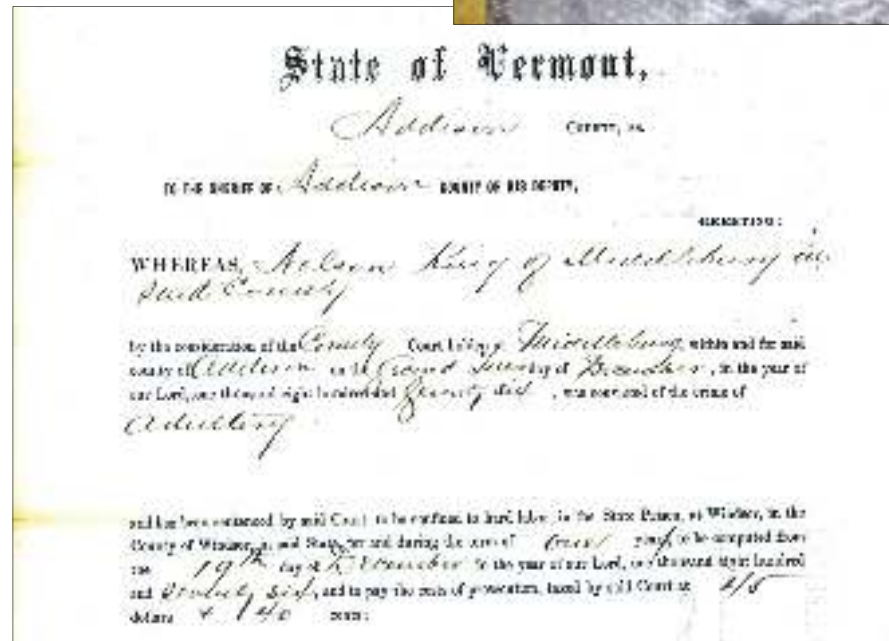 State of Vermont,
Addison COUNTY, ss.
TO THE SHERIFF OF Addison COUNTY OR HIS DEPUTY,
GREETING:
WHEREAS, Nelson King of Middlebury in
said County
by the consideration of the County Court at Middlebury, within and for said
county of Addison on the Second of December, in the year of
our Lord, one thousand eight hundred and Seventy six, was convicted of the crime of
Adultery
and has been sentenced by said Court to be confined to hard labor, in the State Prison, at Windsor, in the
County of Windsor, in said State, for and during the term of One year, to be computed from
the 19th day of December in the year of our Lord, one thousand eight hundred
and Seventy six, and to pay the costs of prosecution, taxed by said Court at
dollars & 40 cents: